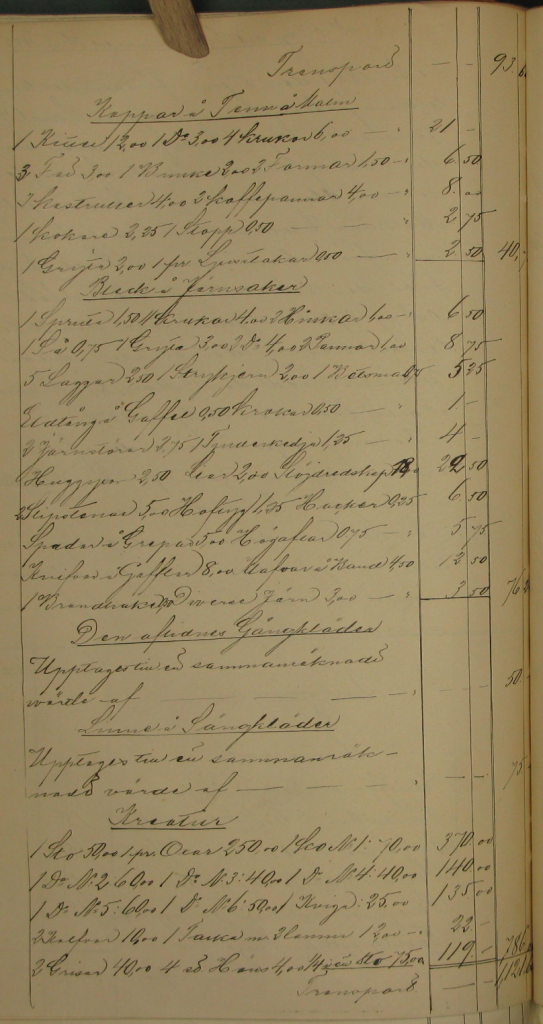 Transport — — 93.
Koppar & Tenn & Malm
1 Kittel 12,00 1 Do 3,00 4 Krukor 6,00 — " 21 -
3 Fat 3,00 1 Bunke 2,00 2 Formar 1,50 - " 6 50
3 Kastruller 4,00 3 Kaffepannor 4,00 - " 8. 00
1 Kokare 2,25 1 Stopp 0,50 " 2 75
1 Gryta 2,00 1 pr Ljusstakar 0,50 — " 2 50 40,
Bleck & Jernsaker
1 1,50 4 Krukor 4,00 2 Hinkar 1,00 - " 6 50
1 Så 0,75 1 Gryta 3,00 2 Do 4,00 2 Pannor 1,00 8 75
5 Laggar 2,50 1 Strykjern 2,00 1 0,75 5 25
Eldtång & Gaffel 0,50 Krokar 0,50 — " 1 -
2 Järnstörar 2,75 1 Tjuderkedja 1,25 — " 4 -
Huggyxor 2,50 Liar 2,00 Slöjdredskap 22 50
5,00 Hoftyg 1,25 Hackor 0,25 6 50
Spadar & Grepar 5,00 Högaflar 0,75 — " 5 75
Knifvar & Gafflar 8,00 & Band 4,50 12 50
1 Brandhake Diverse Järn 3,00 — " 3 50 76
Den aflidnes Gångkläder
Upptages till en sammanräknadt
värde af — — — " — — 50
Linne & Sängkläder
Upptages till en sammanräk-
nadt värde af — — — " — — 75
Kreatur
1 Sto 50,00 1 pr Oxar 250,00 1 Ko No 1: 70,00 370,00
1 Do No 2: 60,00 1 Do No 3: 40,00 1 Do No 4: 40,00 140,00
1 Do No 5: 60,00 1 Do No 6: 50,00 1 Kviga: 25,00 135,00
2 Kalfvar 10,00 1 Tacka m 2 lamm 12,00 - " 22 -
2 Grisar 40,00 4 st Höns 4,00 Sto 75,00 119 - 786
Transport — — 1,121